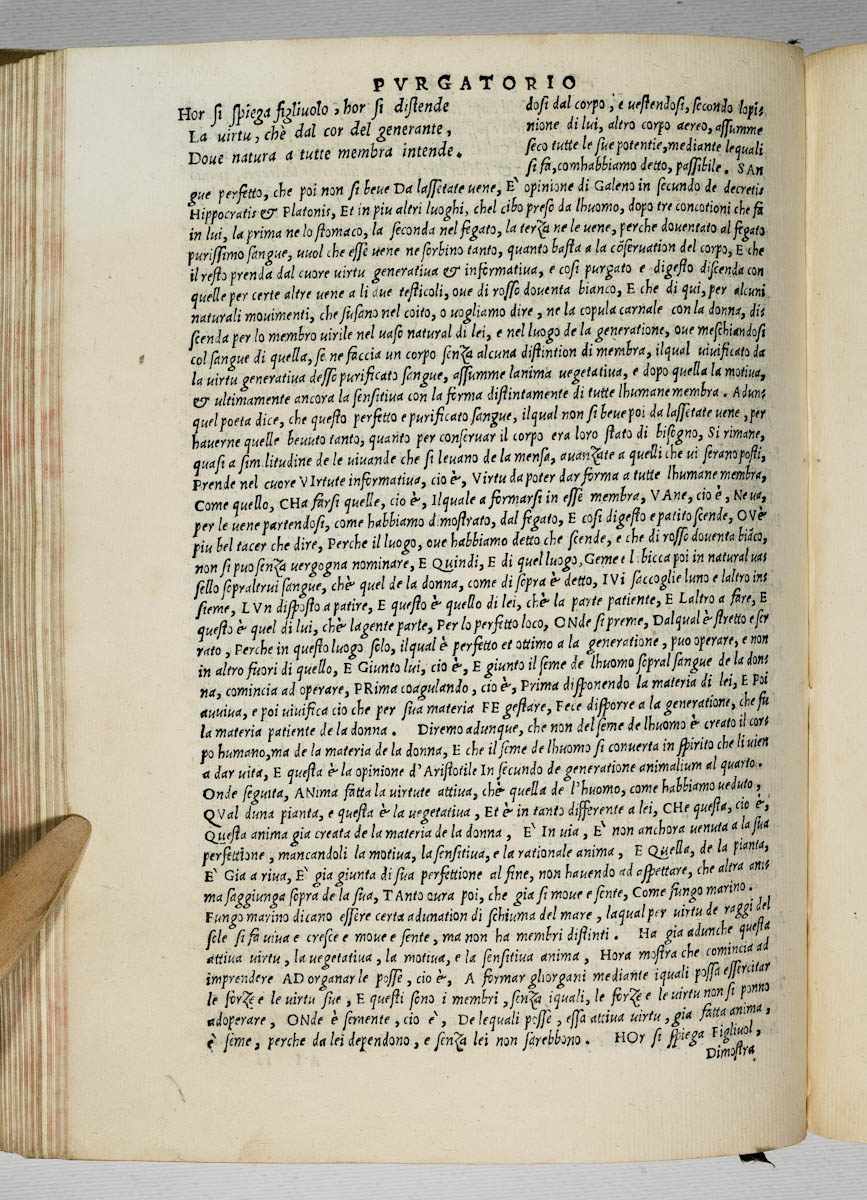 PVRGATORIO
Hor si spiega figliuolo, hor si distende
La virtu, chè dal cor del generante,
Doue natura a tutte membra intende.
dosi dal corpo, e uestendosi, secondo lopi=
nione di lui, altro corpo aereo, assumme
seco tutte le sue potentie, mediante lequali
si fa, com habbiamo detto, passibile. SAn
gue perfetto, che poi non si beue Da lassetate uene, E' opinione di Galeno in secundo de decretis
Hippocratis & Platonis, Et in piu altri luoghi, chel cibo preso da lhuomo, dopo tre concotioni che fa
in lui, la prima ne lo stomaco, la seconda nel fegato, la terza ne le uene, perche douentato al fegato
purissimo sangue, uuol che esse uene ne sorbino tanto, quanto basta a la cōseruation del corpo, E che
il resto prenda dal cuore uirtu generatiua & informatiua, e cosi purgato e digesto discenda con
quelle per certe altre uene a li due testicoli, oue di rosso douenta bianco, E che di qui, per alcuni
naturali mouimenti, che susano nel coito, o uogliamo dire, ne la copula carnale con la donna, di=
scenda per lo membro uirile nel uaso natural di lei, e nel luogo de la generatione, oue meschiandosi
col sangue di quella, se ne faccia un corpo senza alcuna distintion di membra, ilqual uiuificato da
la uirtu generatiua desso purificato sangue, assumme lanima uegetatiua, e dopo quella la motiua,
& ultimamente ancora la sensitiua con la forma distintamente di tutte lhumane membra. Adun=
quel poeta dice, che questo perfetto e purificato sangue, ilqual non si beue poi da lassetate uene, per
hauerne quelle beuuto tanto, quanto per conseruar il corpo era loro stato di bisogno, Si rimane,
quasi a similitudine de le uiuande che si leuano de la mensa, auanzate a quelli che ui serano posti,
Prende nel cuore VIrtute informatiua, cio è, Virtu da poter dar forma a tutte lhumane membra,
Come quello, CHa farsi quelle, cio è, Ilquale a formarsi in esse membra, VAne, cio è, Ne ua,
per le uene partendosi, come habbiamo dimostrato, dal fegato, E cosi digesto e patito scende, OVè
piu bel tacer che dire, Perche il luogo, oue habbiamo detto che scende, e che di rosso douenta biāco,
non si puo senza uergogna nominare, E Quindi, E di quel luogo, Geme e l bicca poi in natural uas
sello sopraltrui sangue, chè quel de la donna, come di sopra è detto, IVi saccoglie luno e laltro in=
sieme, LVn disposto a patire, E questo è quello di lei, chè la parte patiente, E Laltro a fare, E
questo è quel di lui, chè lagente parte, Per lo perfetto loco, ONde si preme, Dalqual è stretto e ser
rato, Perche in questo luogo solo, ilqual è perfetto et ottimo a la generatione, puo operare, e non
in altro fuori di quello, E Giunto lui, cio è, E giunto il seme de lhuomo sopral sangue de la don=
na, comincia ad operare, PRima coagulando, cio è, Prima disponendo la materia di lei, E Poi
auuiua, e poi uiuifica cio che per sua materia FE gestare, Fece disporre a la generatione, che fu
la materia patiente de la donna. Diremo adunque, che non del seme de lhuomo è creato il cor=
po humano, ma de la materia de la donna, E che il seme de lhuomo si conuerta in spirito che li uien
a dar uita, E questa è la opinione d'Aristotile In secundo de generatione animalium al quarto.
Onde seguita, ANima fatta la uirtute attiua, chè quella de l'huomo, come habbiamo ueduto,
QVal duna pianta, e questa è la uegetatiua, Et è in tanto differente a lei, CHe questa, cio è,
Questa anima gia creata de la materia de la donna, E' In uia, E' non anchora uenuta a la sua
perfettione, mancandoli la motiua, la sensitiua, e la rationale anima, E Quella, de la pianta,
E' Gia a riua, E' gia giunta di sua perfettione al fine, non hauendo ad aspettare, che altra ani=
ma saggiunga sopra de la sua, TAnto oura poi, che gia si moue e sente, Come fungo marino.
Fungo marino dicano essere certa adunation di schiuma del mare, laqual per uirtu de raggi del
sole si fa uiua e cresce e moue e sente, ma non ha membri distinti. Ha gia adunche questa
attiua uirtu, la uegetatiua, la motiua, e la sensitiua anima, Hora mostra che comincia ad
imprendere AD organar le posse, cio è, A formar gliorgani mediante iquali possa essercitar
le forze e le uirtu sue, E questi sono i membri, senza iquali, le forze e le uirtu non si ponno
adoperare, ONde è semente, cio è, De lequali posse, essa attiua uirtu, gia fatta anima,
è seme, perche da lei dependono, e senza lei non sarebbono. HOr si spiega Figliuol,
Dimostra